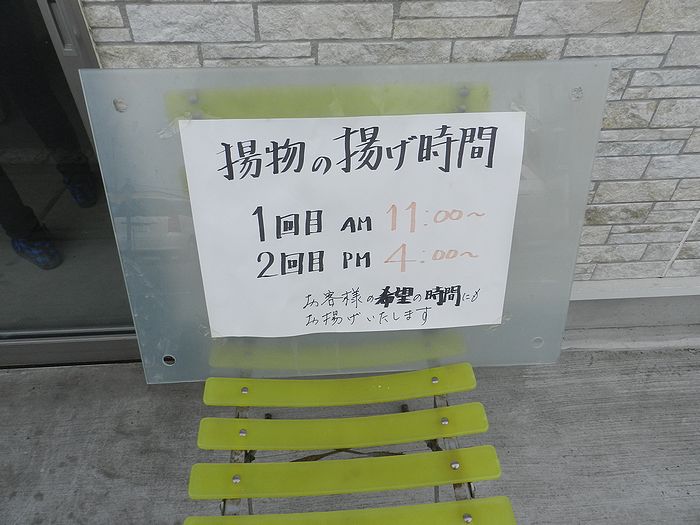 揚物の揚げ時間
1回目 AM 11:00～
2回目 PM 4:00～
お客様の希望の時間にも
お揚げいたします